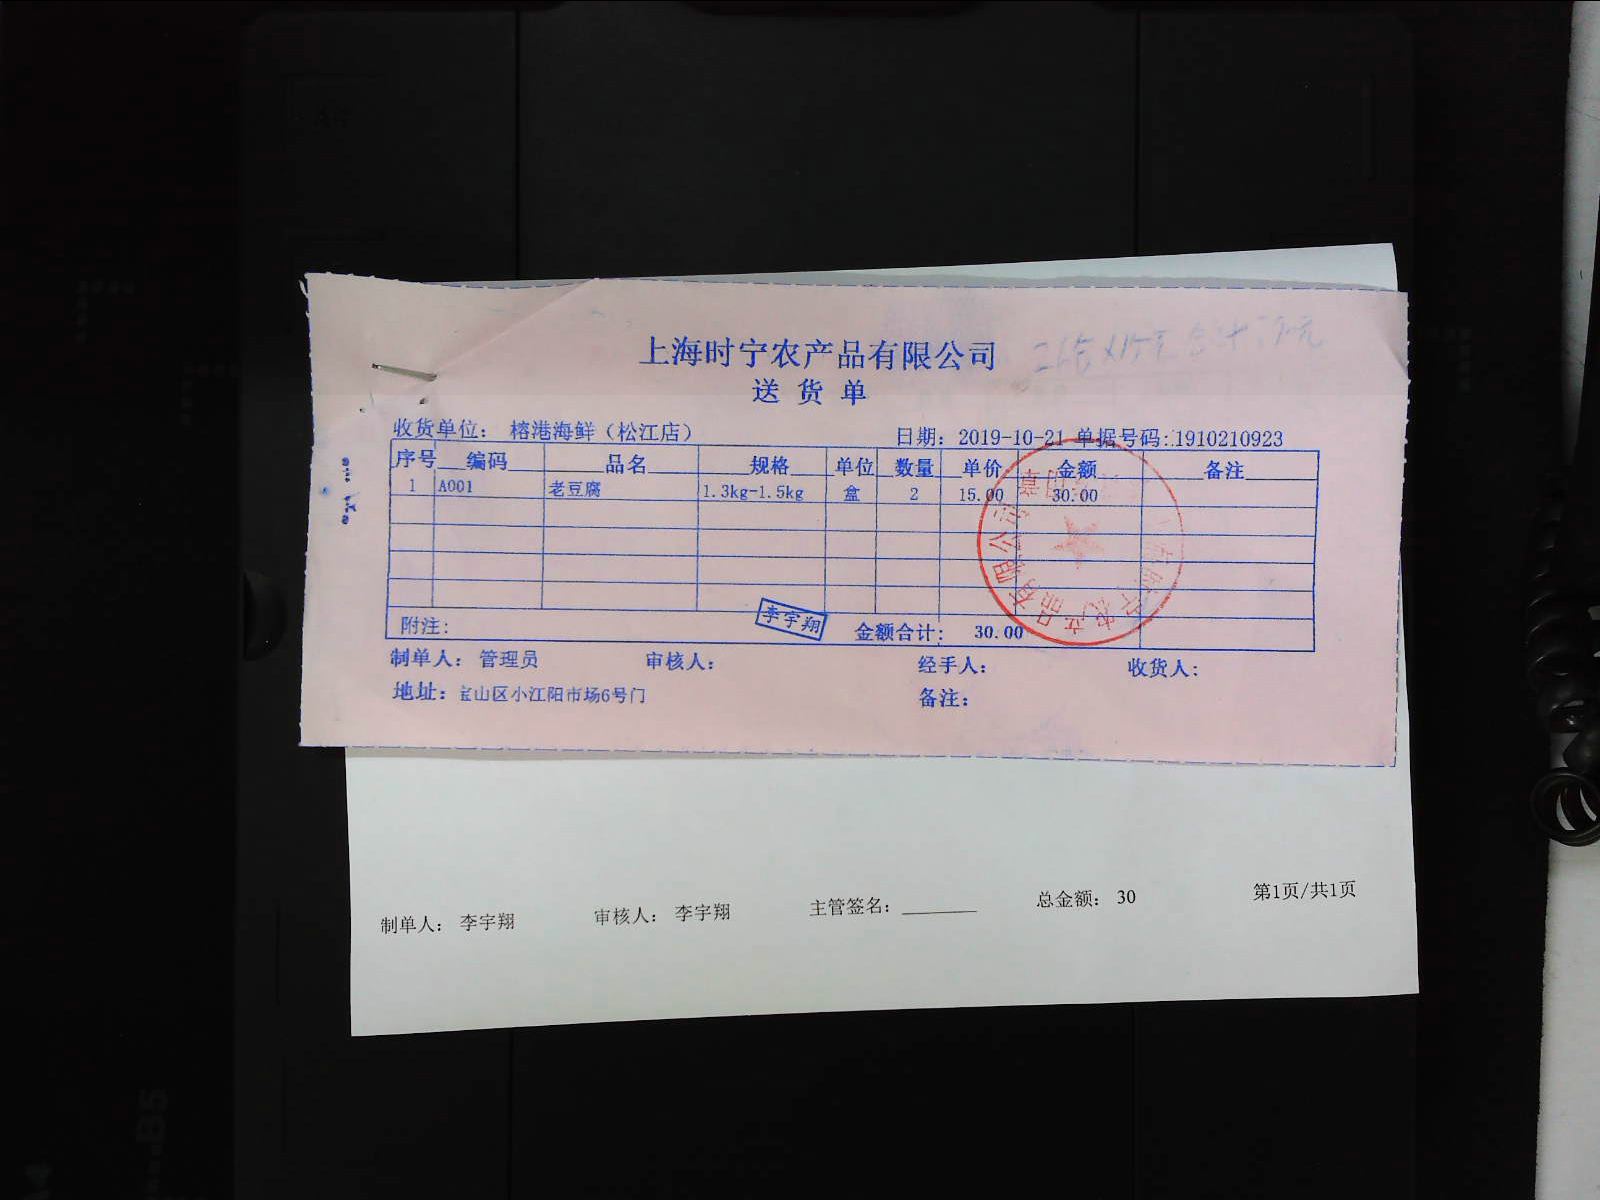 上海时宁农产品有限公司
送货单
收货单位: 榕港海鲜（松江店） 日期: 2019-10-21 单据号码:1910210923
序号 编码 品名 规格 单位 数量 单价 金额 备注
1 A001 老豆腐 1.3kg-1.5kg 盒 2 15.00 30.00
附注: 李宇翔 金额合计: 30.00
制单人: 管理员 审核人: 经手人: 收货人:
地址: 宝山区小江阳市场6号门 备注:
制单人: 李宇翔 审核人: 李宇翔 主管签名: 总金额: 30 第1页/共1页
B5